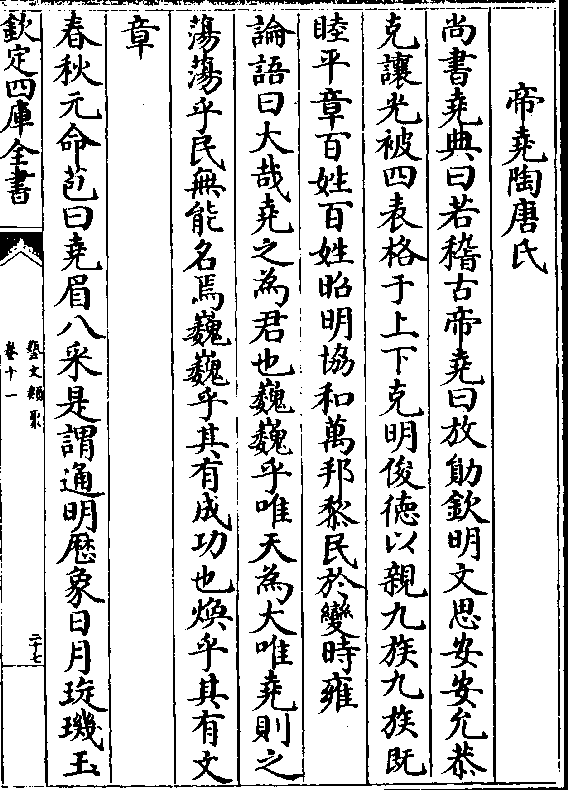 帝堯陶唐氏
尚書堯典曰若稽古帝堯曰放勛欽明文思安安允恭
克讓光被四表格于上下克明俊徳以親九族九族既
睦平章百姓百姓昭明協和萬邦黎民於變時雍
論語曰大哉堯之為君也巍巍乎唯天為大唯堯則之
蕩蕩乎民無能名焉巍巍乎其有成功也煥乎其有文
章
春秋元命苞曰堯眉八采是謂通明歴象日月璇璣玉
欽定四庫全書
藝文類聚
卷十一
二十七